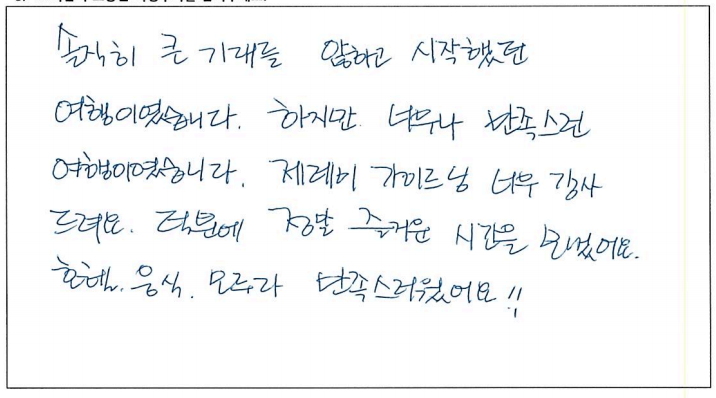 솔직히 큰 기대를 않하고 시작했던
여행이였습니다. 하지만 너무나 만족스런
여행이였습니다. 제레미 가이드님 너무 감사
드려요. 덕분에 정말 즐거운 시간을 보냈어요.
호텔. 음식. 모두라 만족스러웠어요!!